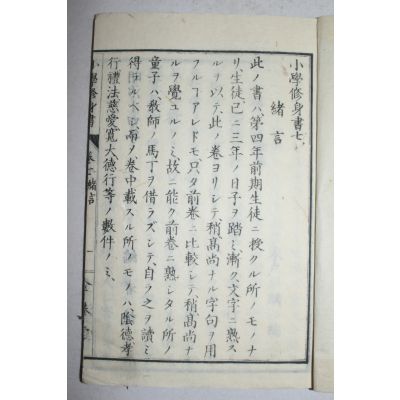 小學修身書七、
緒言
此ノ書ハ第四年前期生徒ニ授クル所ノモノナ
リ、生徒、已ニ三年ノ日子ヲ踏ミ、漸ク文字ニ熟ス
ルヲ以テ、此ノ卷ヨリシテ、稍高尚ナル字句ヲ用
フル┐アレドモ、只タ前卷ニ比較シテ、稍高尚ナ
ルヲ覺ユルノミ、故ニ能ク前卷ニ熟シタル所ノ
童子ハ、教師ノ
ヲ借ラズシテ、自ラ之ヲ讀ミ
得
而
卷中載スル所ノモノハ、陰德孝
行禮法慈愛寬大德行等ノ數件ノミ、
小學修身書
緒言
一